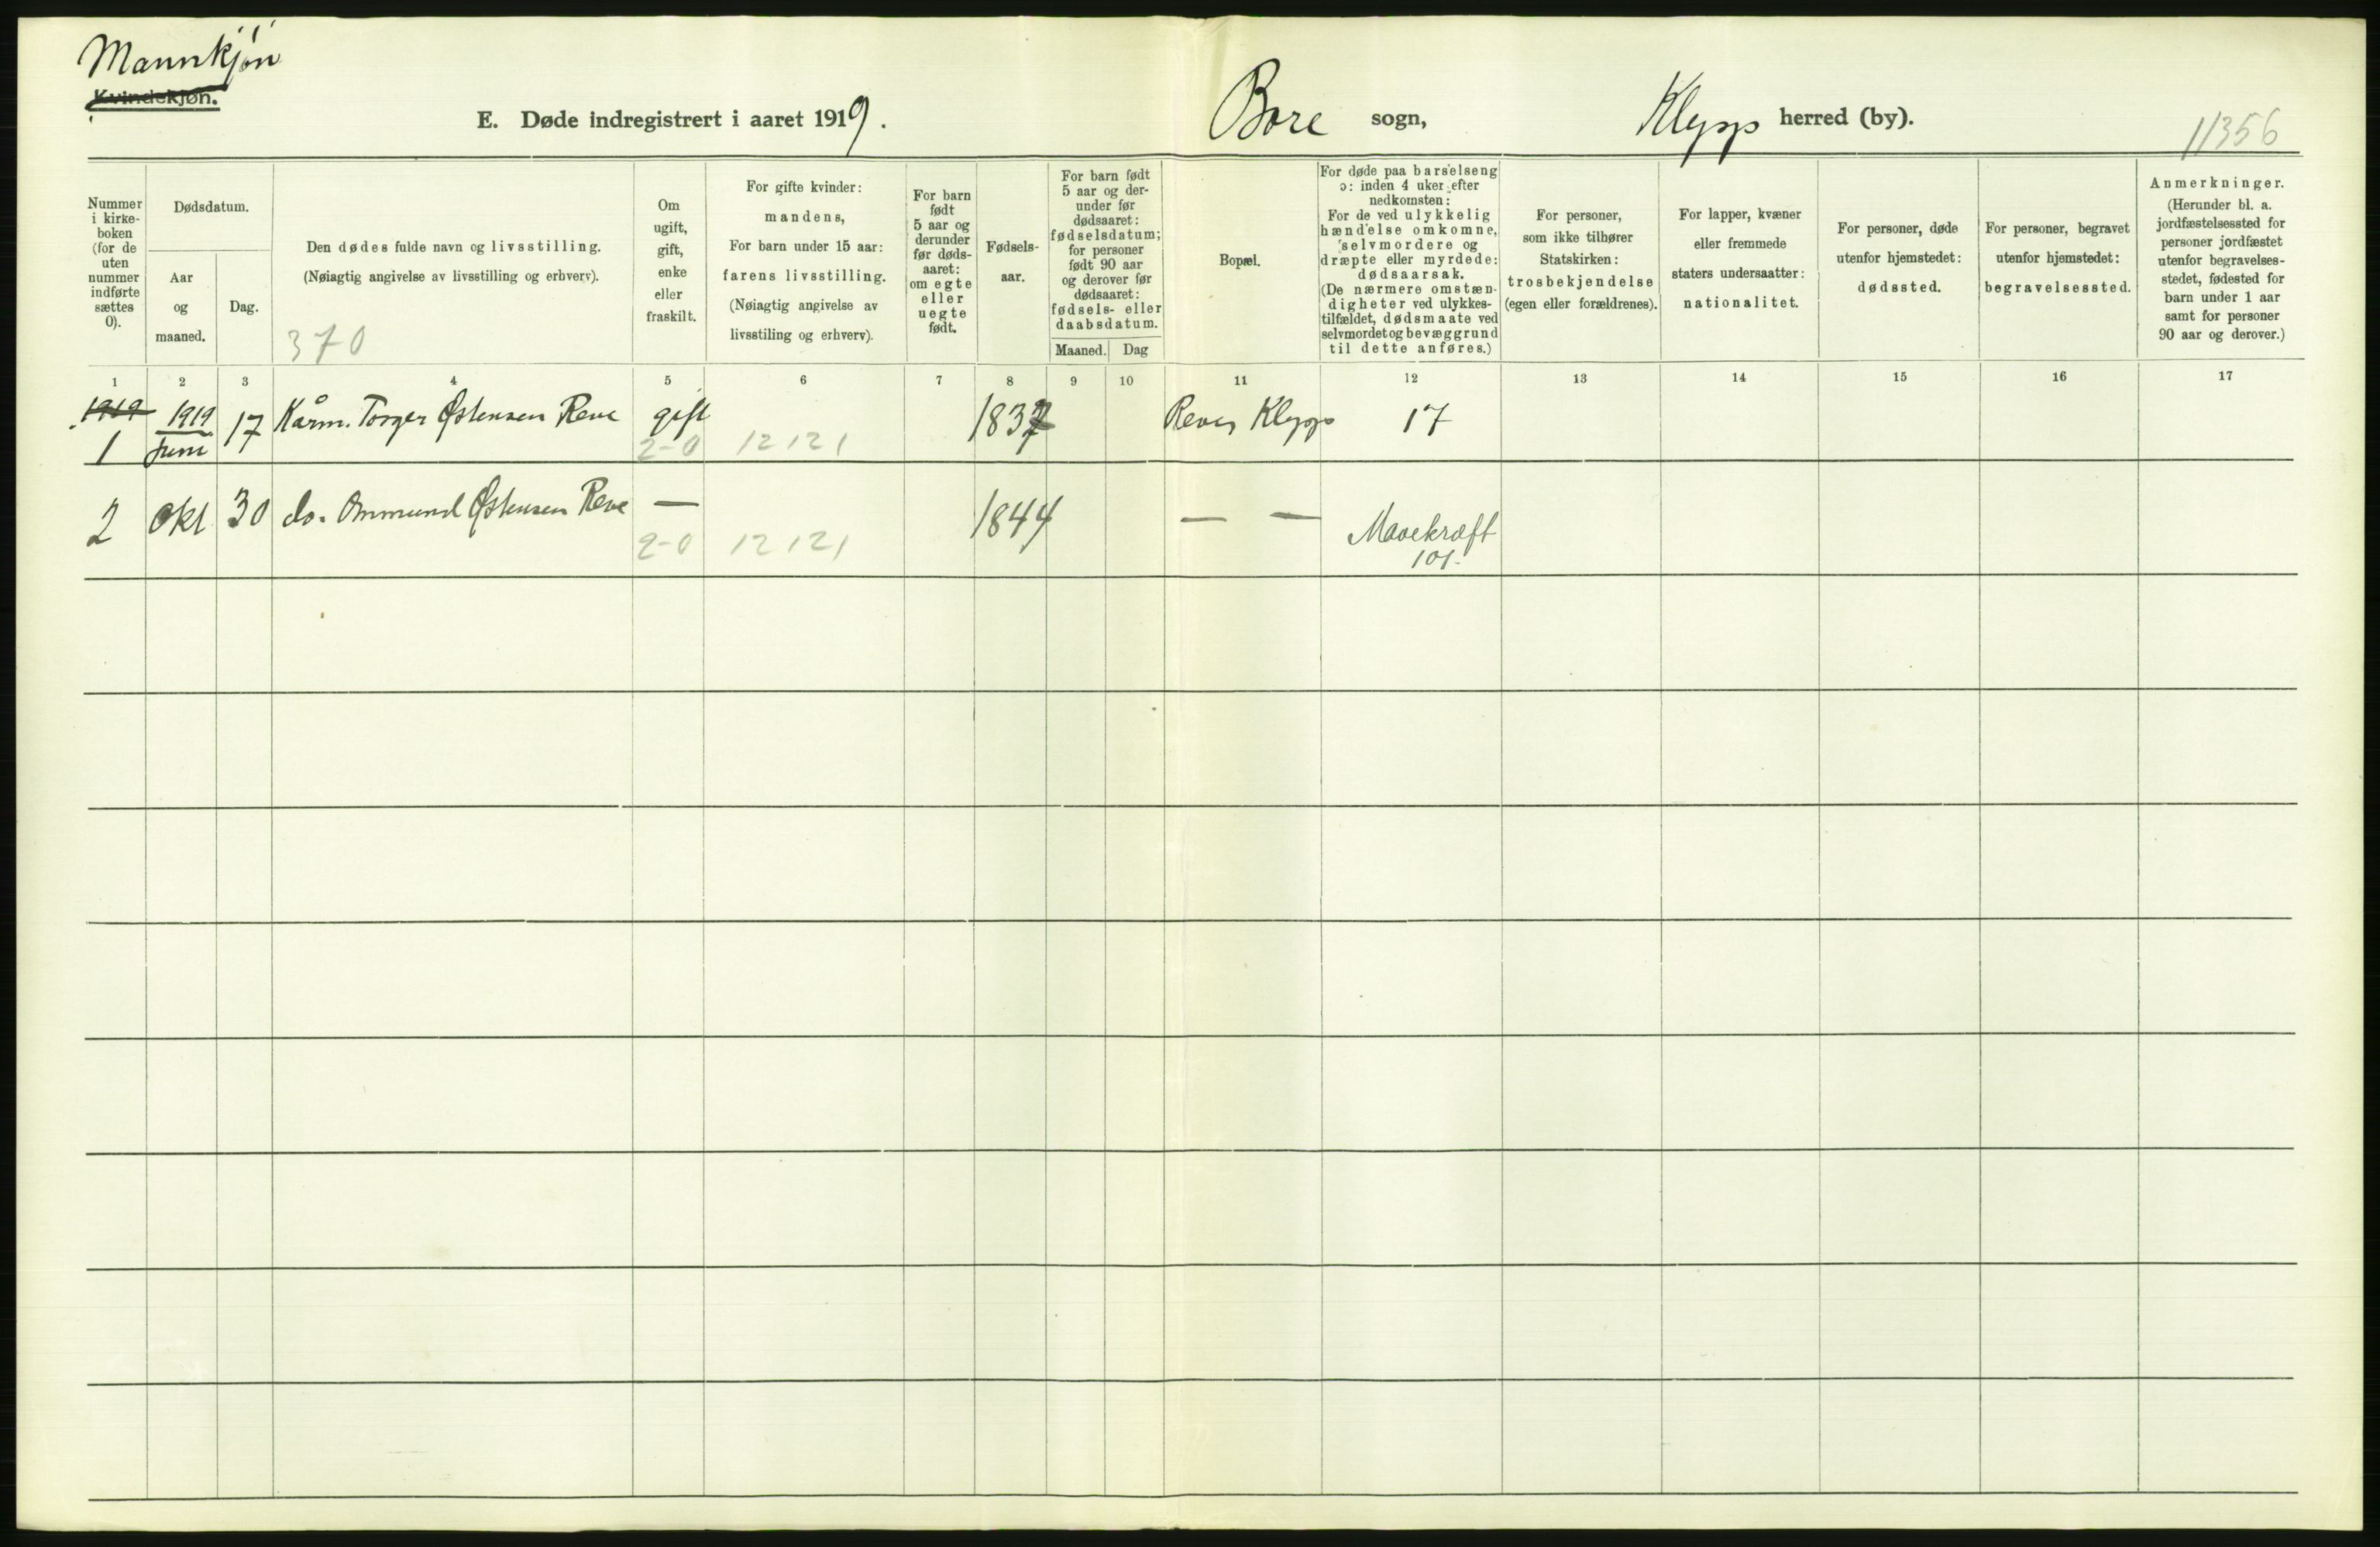 Mannkjøn
Kvindekjøn.
E. Døde indregistrert i aaret 1919.
Bore sogn,
Klepp herred (by).
11356
Nummer
i kirke-
boken
(for de
uten
nummer
indførte
sættes
0).
Dødsdatum.
Aar
og
maaned.
Dag.
Den dødes fulde navn og livsstilling.
(Nøiagtig angivelse av livsstilling og erhverv).
370
Om
ugift,
gift,
enke
eller
fraskilt.
For gifte kvinder:
mandens,
For barn under 15 aar:
farens livsstilling.
(Nøiagtig angivelse av
livsstiling og erhverv).
For barn
født
5 aar og
derunder
før døds-
aaret:
om egte
eller
uegte
født.
Fødsels-
aar.
For barn født
5 aar og der-
under før
dødsaaret:
fødselsdatum;
for personer
født 90 aar
og derover før
dødsaaret:
fødsels- eller
daabsdatum.
Maaned. Dag
Bopæl.
For døde paa barselseng
ɔ: inden 4 uker efter
nedkomsten:
For de ved ulykkelig
hændelse omkomne,
selvmordere og
dræpte eller myrdede:
dødsaarsak.
(De nærmere omstæn-
digheter ved ulykkes-
tilfældet, dødsmaate ved
selvmordet og bevæggrund
til dette anføres.)
For personer,
som ikke tilhører
Statskirken:
trosbekjendelse
(egen eller forældrenes).
For lapper, kvæner
eller fremmede
staters undersaatter:
nationalitet.
For personer, døde
utenfor hjemstedet:
dødssted.
For personer, begravet
utenfor hjemstedet:
begravelsessted.
Anmerkninger.
(Herunder bl. a.
jordfæstelsessted for
personer jordfæstet
utenfor begravelses-
stedet, fødested for
barn under 1 aar
samt for personer
90 aar og derover.)
1 2 3 4 5 6 7 8 9 10 11 12 13 14 15 16 17
1919 1919
1 Juni 17 Kårm. Torger Østensen Reve gift 1837 Reve, Klepp 17
2-0 12121
2 Okt 30 do. Ommund Østensen Reve — 1844 — — Mavekræft
2-0 12121 101.